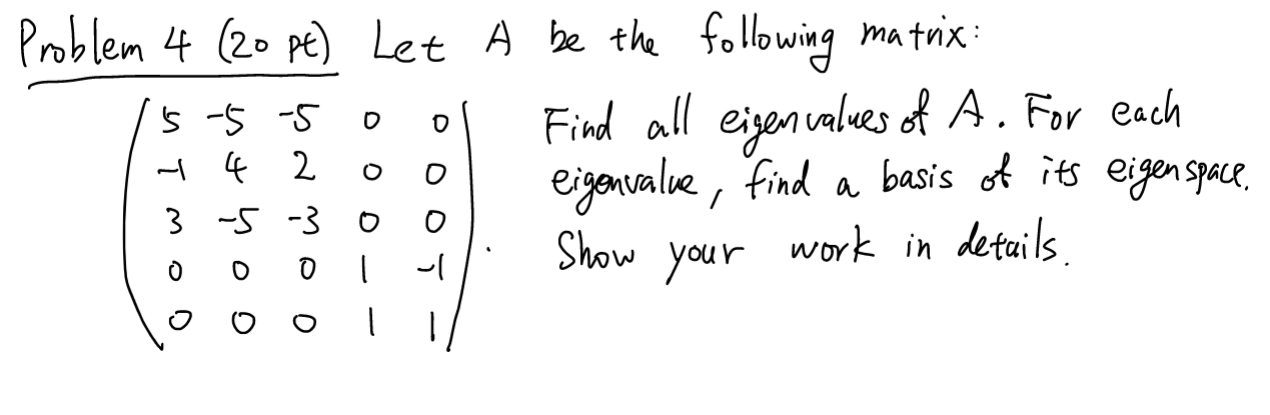 Problem 4 (20 pt) Let A be the following matrix:
5 -5 -5 0 0
-1 4 2 0 0
3 -5 -3 0 0
0 0 0 1 -1
0 0 0 1 1
.
Find all eigenvalues of A. For each
eigenvalue, find a basis of its eigenspace.
Show your work in details.